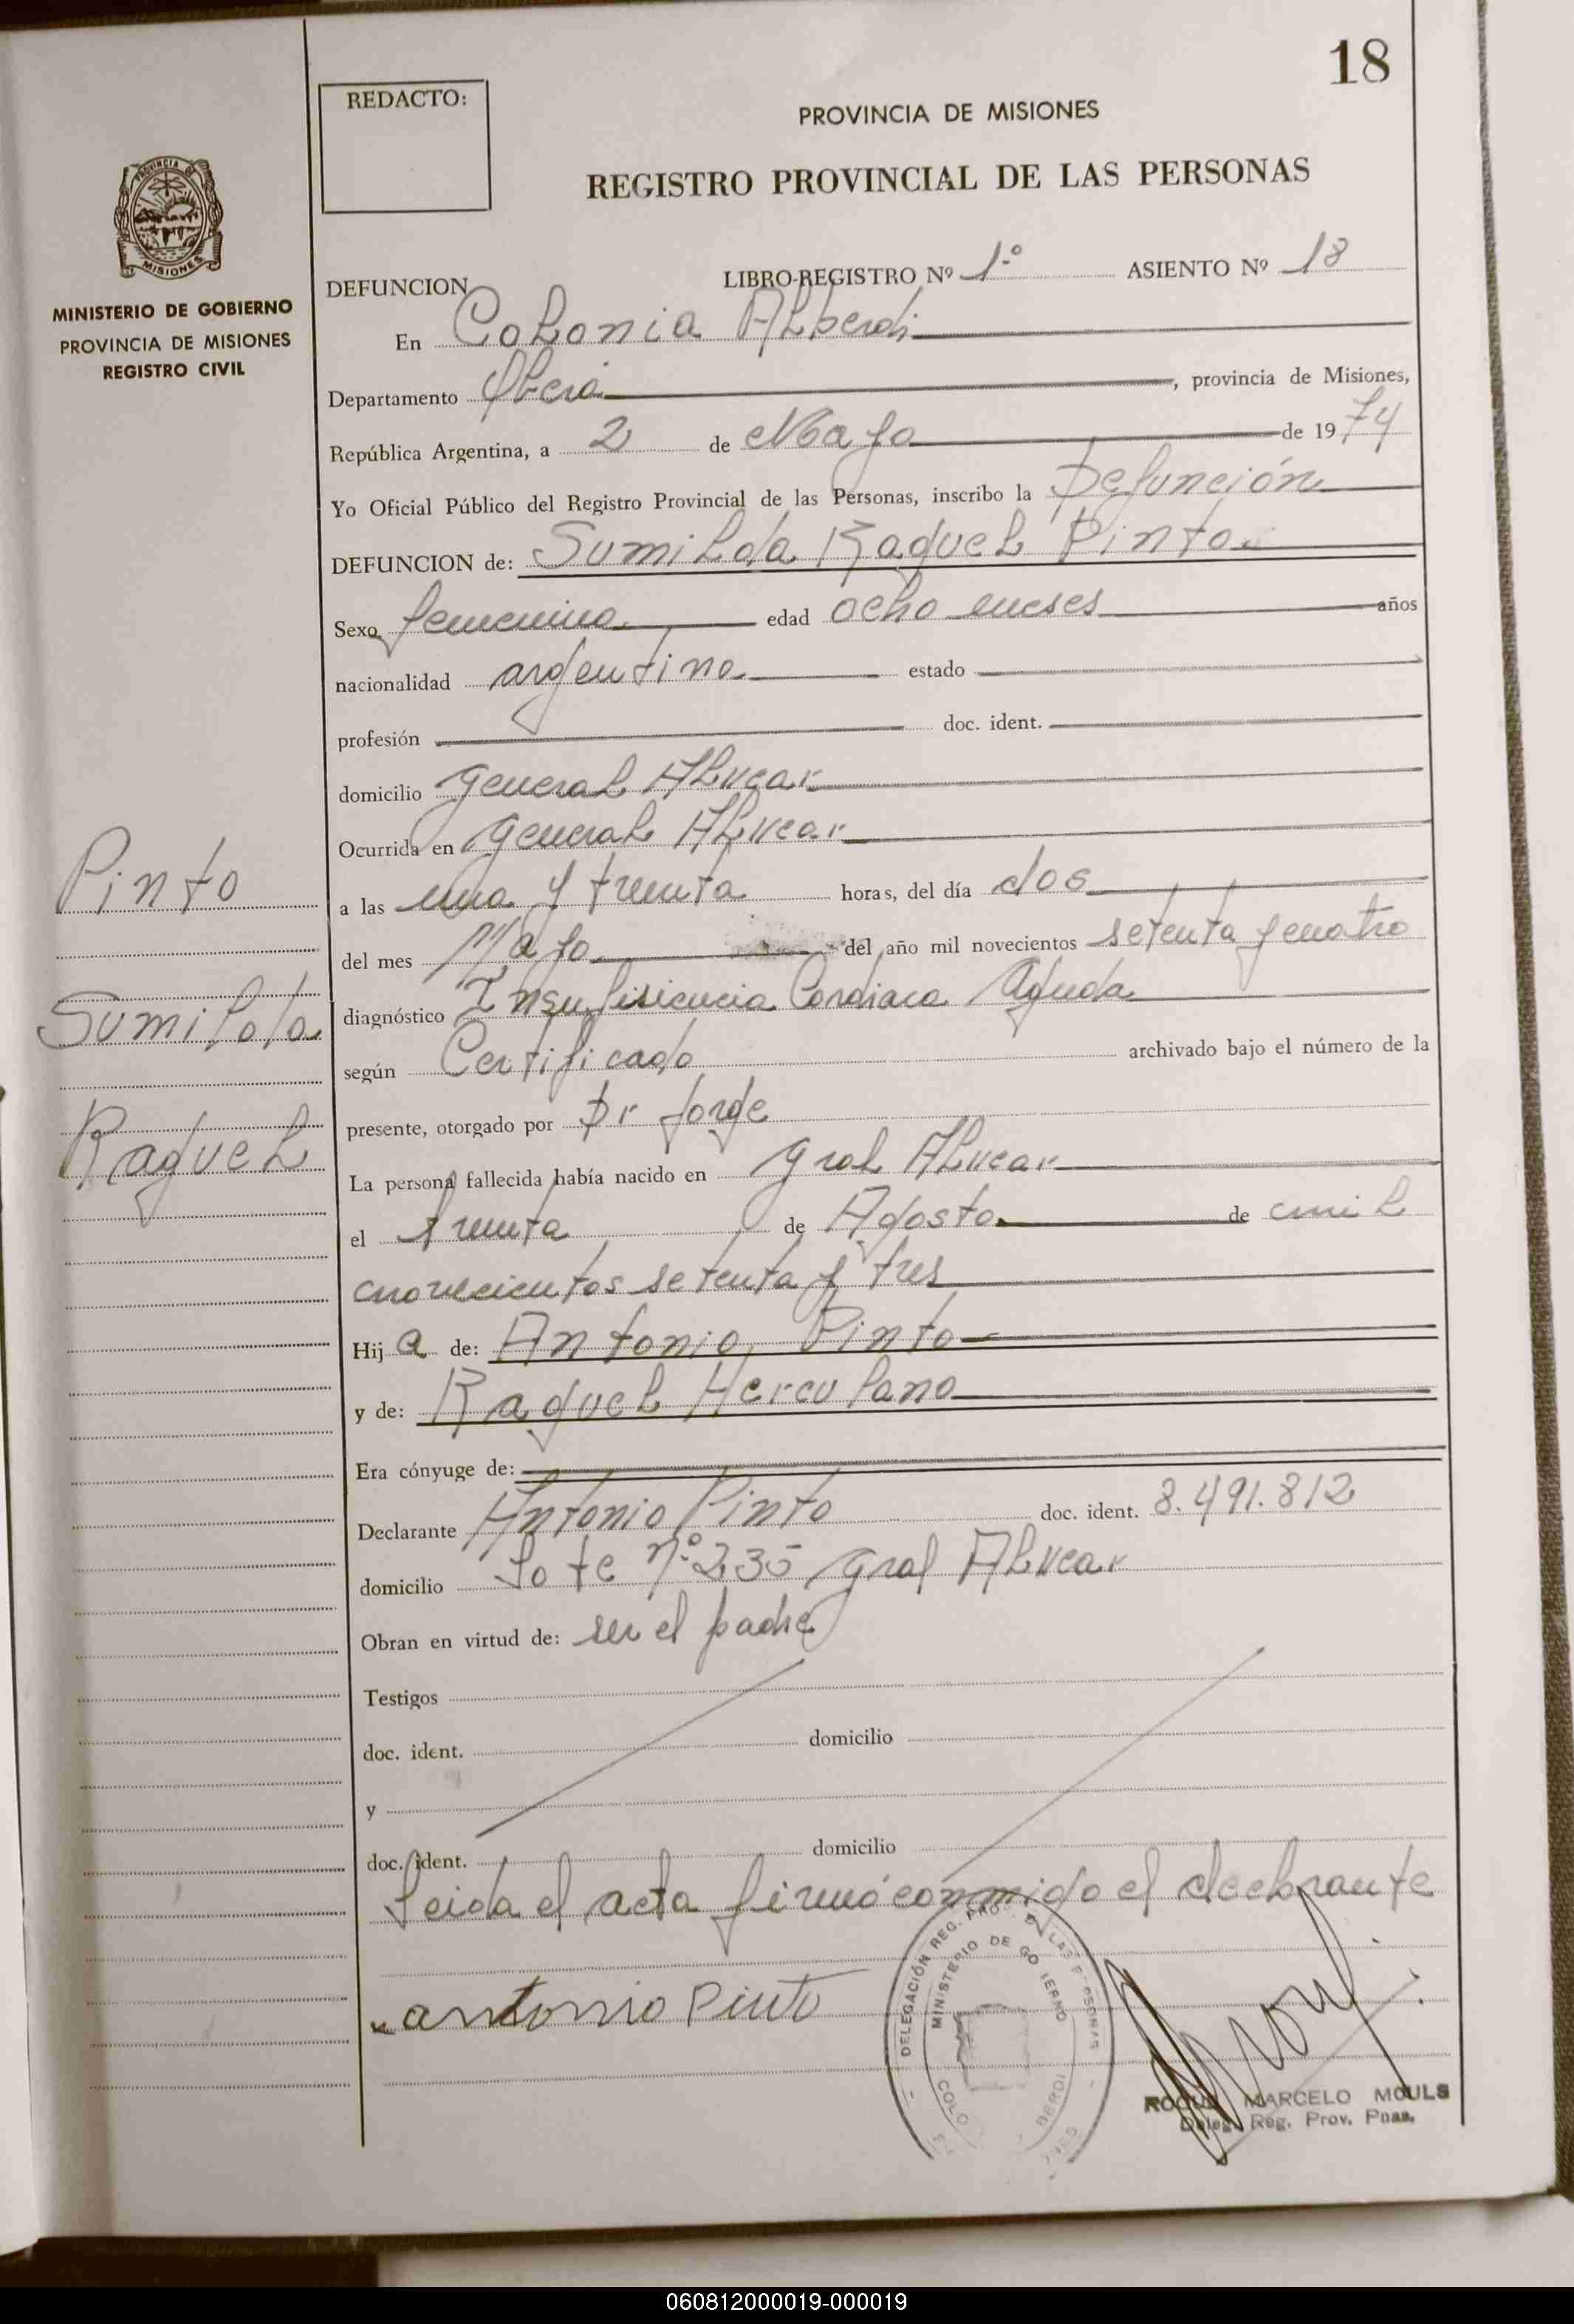 18
REDACTO:
PROVINCIA DE MISIONES
REGISTRO PROVINCIAL DE LAS PERSONAS
PROVINCIA DE
MISIONES
MINISTERIO DE GOBIERNO
PROVINCIA DE MISIONES
REGISTRO CIVIL
DEFUNCION LIBRO-REGISTRO Nº 1º ASIENTO Nº 18
En Colonia Alberdi
Departamento Oberá, provincia de Misiones,
República Argentina, a 2 de Mayo de 1974
Yo Oficial Público del Registro Provincial de las Personas, inscribo la Defunción
DEFUNCION de: Sumilda Raquel Pinto
Sexo femenino edad ocho meses años
nacionalidad argentina estado
profesión doc. ident.
domicilio general Alvear
Ocurrida en general Alvear
a las una y treinta horas, del día dos
del mes Mayo del año mil novecientos setenta y cuatro
diagnóstico Insufisiencia Cardiaca Aguda
según Certificado archivado bajo el número de la
presente, otorgado por Dr Jorge
La persona fallecida había nacido en gral Alvear
el treinta de Agosto de mil
novecientos setenta y tres
Hija de: Antonio Pinto
y de: Raquel Herculano
Era cónyuge de:
Declarante Antonio Pinto doc. ident. 8.491.812
domicilio Lote nº 235 gral Alvear
Obran en virtud de: ser el padre
Testigos
doc. ident. domicilio
y
doc. ident. domicilio
Leida el acta firmó conmigo el declarante
antonio Pinto
Pinto
Sumilda
Raquel
DELEGACIÓN REG. PRO LAS PERSONAS
MINISTERIO DE GOBIERNO
ROQUE MARCELO MOULS
Deleg. Reg. Prov. Pnas.
060812000019-000019